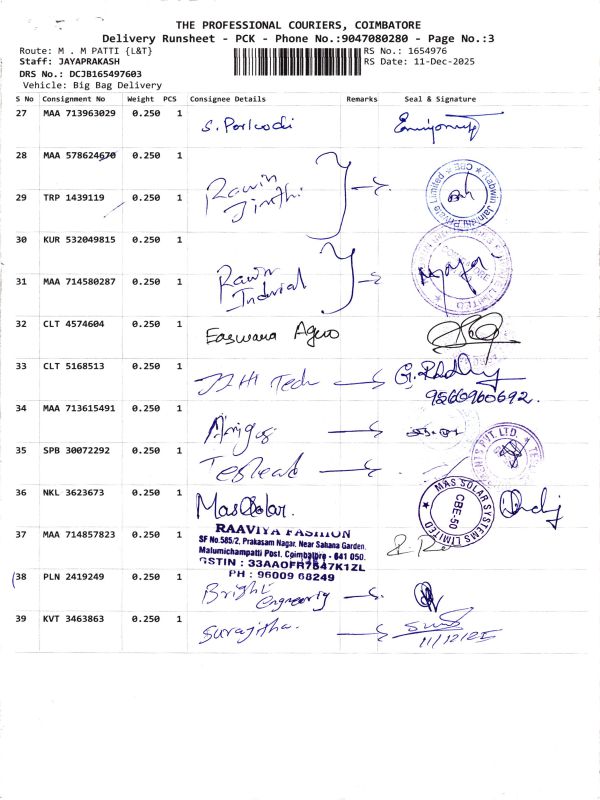 THE PROFESSIONAL COURIERS, COIMBATORE
Delivery Runsheet - PCK - Phone No.:9047080280 - Page No.:3
Route: M . M PATTI {L&T} RS No.: 1654976
Staff: JAYAPRAKASH RS Date: 11-Dec-2025
DRS No.: DCJB165497603
Vehicle: Big Bag Delivery
S No Consignment No Weight PCS Consignee Details Remarks Seal & Signature
27 MAA 713963029 0.250 1 S. Porkodi
28 MAA 578624670 0.250 1
29 TRP 1439119 0.250 1
30 KUR 532049815 0.250 1
31 MAA 714580287 0.250 1
32 CLT 4574604 0.250 1 Easwara Agro
33 CLT 5168513 0.250 1 Tech
9566960692.
34 MAA 713615491 0.250 1
35 SPB 30072292 0.250 1
36 NKL 3623673 0.250 1 Mas Solar.
MAS SOLAR SYSTEMS LIMITED
CBE-50
37 MAA 714857823 0.250 1 RAAVIYA FASHION
SF No.585/2, Prakasam Nagar, Near Sahana Garden,
Malumichampatti Post, Coimbatore - 641 050.
GSTIN : 33AAOFR7847K1ZL
PH : 96009 68249
38 PLN 2419249 0.250 1 Bright
Engineerig
39 KVT 3463863 0.250 1 Surajitha.
11/12/25